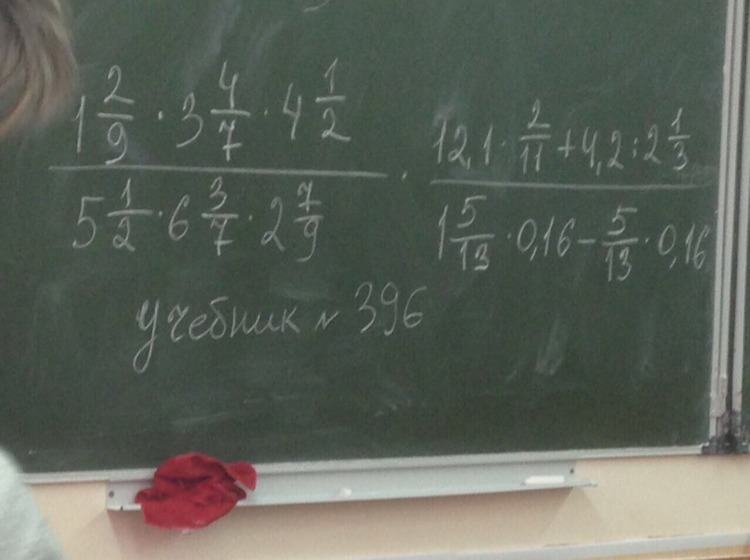 1 2/9 · 3 4/7 · 4 1/2
5 1/2 · 6 3/7 · 2 7/9
·
12,1 · 2/11 + 4,2 : 2 1/3
1 5/13 · 0,16 - 5/13 · 0,16
учебник № 396